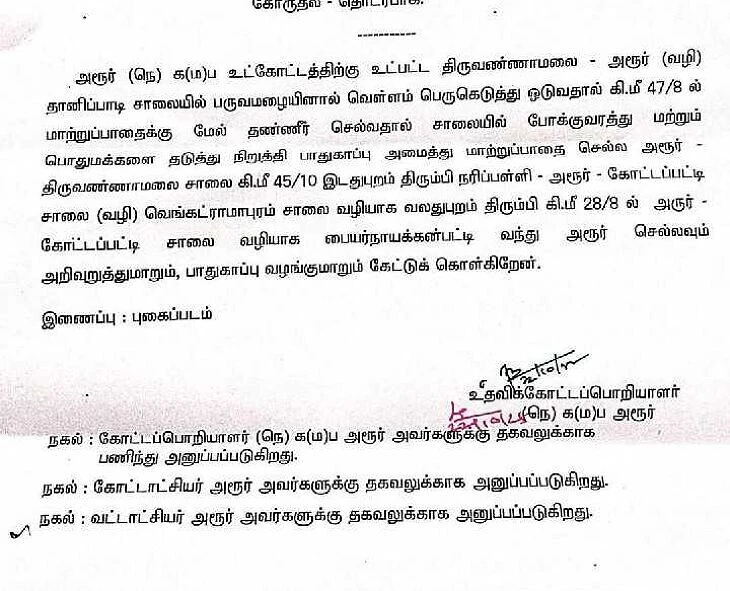 கோருதல் - தொடர்பாக.
-----------
அரூர் (நெ) க(ம)ப உட்கோட்டத்திற்கு உட்பட்ட திருவண்ணாமலை - அரூர் (வழி)
தானிப்பாடி சாலையில் பருவமழையினால் வெள்ளம் பெருகெடுத்து ஓடுவதால் கி.மீ 47/8 ல்
மாற்றுப்பாதைக்கு மேல் தண்ணீர் செல்வதால் சாலையில் போக்குவரத்து மற்றும்
பொதுமக்களை தடுத்து நிறுத்தி பாதுகாப்பு அமைத்து மாற்றுப்பாதை செல்ல அரூர் -
திருவண்ணாமலை சாலை கி.மீ 45/10 இடதுபுறம் திரும்பி நரிப்பள்ளி - அரூர் - கோட்டப்பட்டி
சாலை (வழி) வெங்கட்ராமாபுரம் சாலை வழியாக வலதுபுறம் திரும்பி கி.மீ 28/8 ல் அருர் -
கோட்டப்பட்டி சாலை வழியாக பையர்நாயக்கன்பட்டி வந்து அரூர் செல்லவும்
அறிவுறுத்துமாறும், பாதுகாப்பு வழங்குமாறும் கேட்டுக் கொள்கிறேன்.
இணைப்பு : புகைப்படம்
உதவிக்கோட்டப்பொறியாளர்
(நெ) க(ம)ப அரூர்
நகல் : கோட்டப்பொறியாளர் (நெ) க(ம)ப அரூர் அவர்களுக்கு தகவலுக்காக
பணிந்து அனுப்பப்படுகிறது.
நகல் : கோட்டாட்சியர் அரூர் அவர்களுக்கு தகவலுக்காக அனுப்பப்படுகிறது.
நகல் : வட்டாட்சியர் அரூர் அவர்களுக்கு தகவலுக்காக அனுப்பப்படுகிறது.